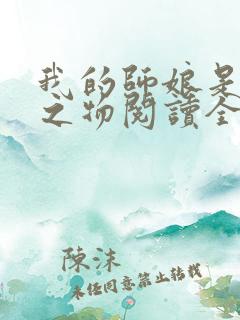 我的師娘是
之物閱讀全
陳沫
未經同意禁止轉載